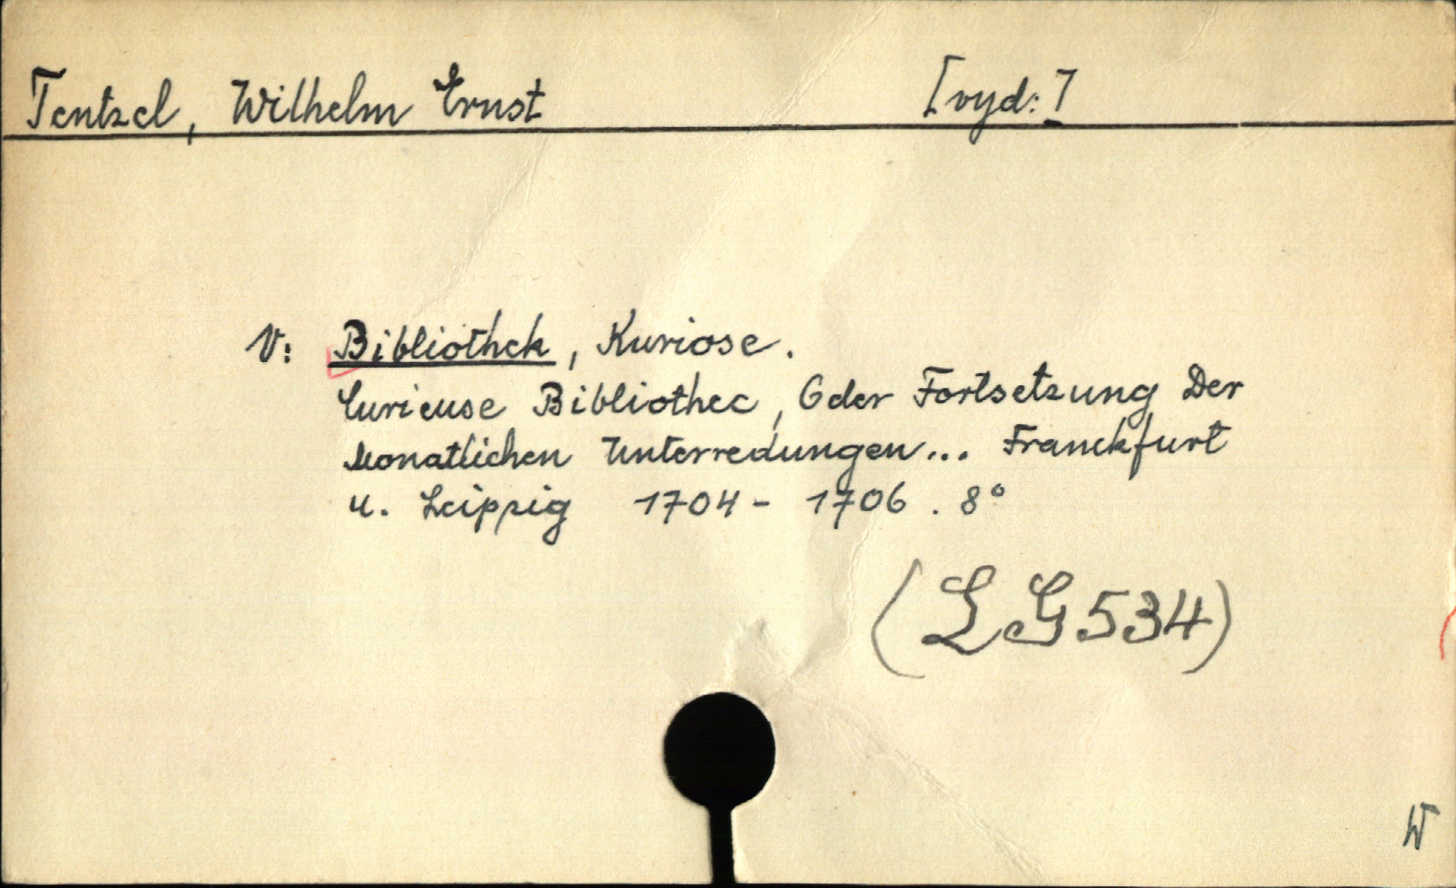 Tentzel, Wilhelm Ernst [vyd:]
V: Bibliothek, Kuriose.
Curieuse Bibliothec, Oder Fortsetzung Der
Monatlichen Unterredungen... Franckfurt
u. Leipzig 1704- 1706. 8°
(LG534)
W